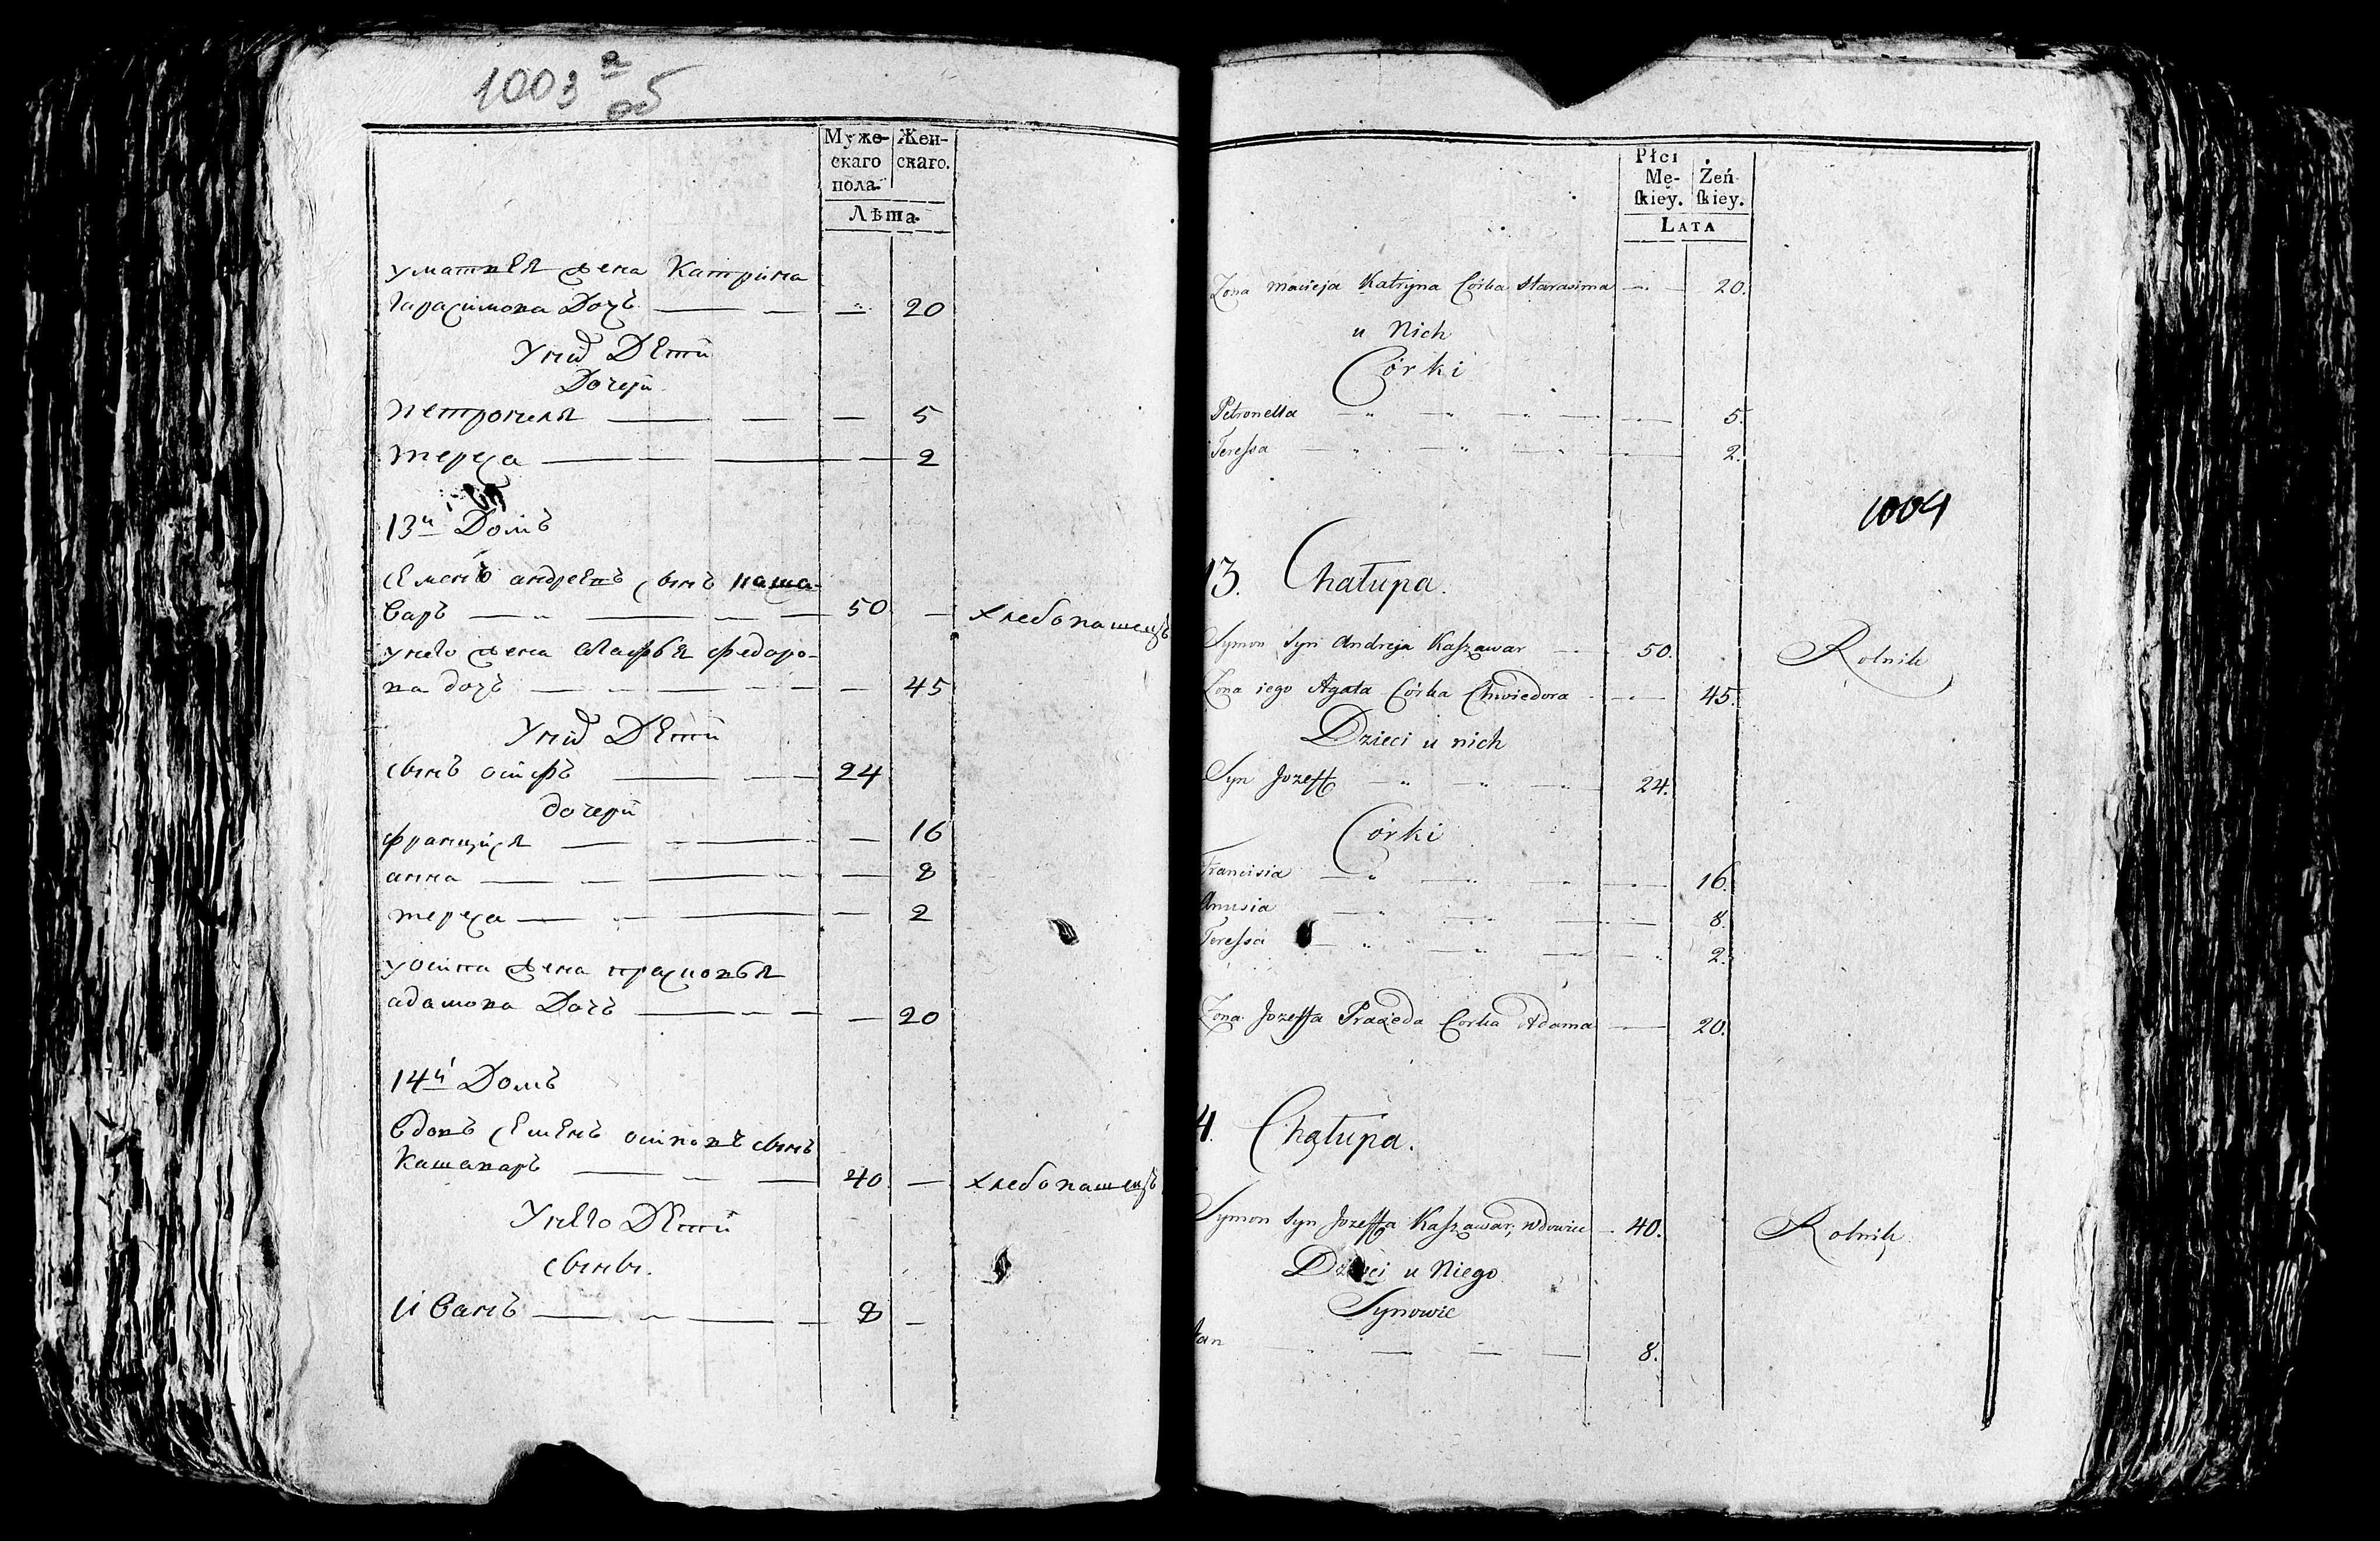 1003 а
об
Муже-
скаго
пола.
Жен-
скаго.
Лѣта.
у матвея жена Катрина
Гарасимова Дочь 20
У них Дети
Дочери
петронеля 5
тереса 2
13й Домъ
Семенъ андреевъ сынъ каша-
варъ 50 хлебопашецъ
унего жена агафья федоро-
ва дочь 45
У них Дети
сынъ осифъ 24
дочери
францися 16
анна 8
тереса 2
у осипа жена прасковья
адамова Дочь 20
14й Домъ
вдовъ Семенъ осиповъ сынъ
Кашаваръ 40 хлебопашецъ
У него Дети
сыны.
Иванъ 8
Płci
Mę-
ſkiey.
Żeń
ſkiey.
LATA
Zona Macieja Katryna Córka Harasima 20.
u Nich
Córki
Petronella 5.
Tereſsa 2.
1004
13. Chałupa.
Symon Syn Andreja Kaſzawar 50. Rolnik
Zona iego Agata Córka Chwiedora 45.
Dzieci u nich
Syn Jozeff 24.
Córki
Francisia 16.
Anusia 8.
Tereſsa 2.
Zona Jozeffa Praxeda Corka Adama 20.
4. Chałupa.
Symon Syn Jozeffa Kaſzawar, Wdowiec 40. Rolnik
Dzieci u Niego
Synowie
Jan 8.